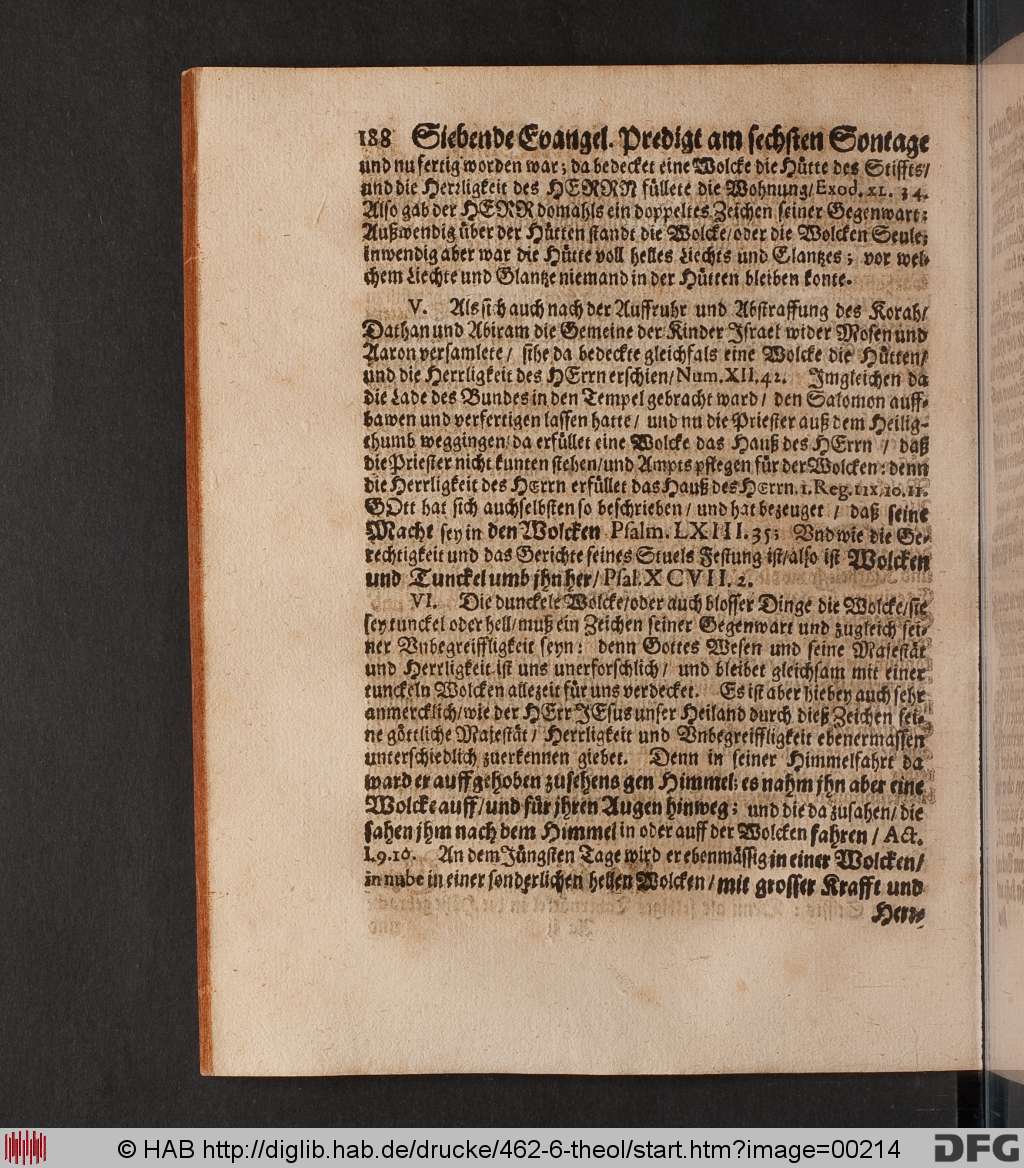 188 Siebende Evangel. Predigt am sechsten Sontage
und nu fertig worden war; da bedecket eine Wolcke die Hütte des Stiffts/
und die Herrligkeit des HERRN füllete die Wohnung/Exod. xl. 34.
Also gab der HERR domahls ein doppeltes Zeichen seiner Gegenwart;
Außwendig über der Hütten standt die Wolcke/oder die Wolcken Seule;
inwendig aber war die Hütte voll helles Liechts und Glantzes; vor wel-
chem Liechte und Glantze niemand in der Hütten bleiben konte.
V. Als sich auch nach der Auffruhr und Abstraffung des Korah/
Dathan und Abiram die Gemeine der Kinder Israel wider Mosen und
Aaron versamlete/ sihe da bedeckte gleichfals eine Wolcke die Hütten/
und die Herrligkeit des HErrn erschien/Num. XII. 42. Imgleichen da
die Lade des Bundes in den Tempel gebracht ward/ den Salomon auff-
bawen und verfertigen lassen hatte/ und nu die Priester auß dem Heilig-
thumb weggingen/da erfüllet eine Wolcke das Hauß des HErrn / daß
die Priester nicht kunten stehen/und Ampts pflegen für der Wolcken: denn
die Herrligkeit des HErrn erfüllet das Hauß des HErrn. 1. Reg. IIX. 10. 11.
GOtt hat sich auch selbsten so beschrieben/ und hat bezeuget / daß seine
Macht sey in den Wolcken Psalm. LXIII. 35; Vnd wie die Ge-
rechtigkeit und das Gerichte seines Stuels Festung ist/also ist Wolcken
und Tunckel umb jhn her/Psal. XCVII. 2.
VI. Die dunckele Wolcke/oder auch blosser Dinge die Wolcke/sie
sey tunckel oder hell/muß ein Zeichen seiner Gegenwart und zugleich sei-
ner Vnbegreiffligkeit seyn: denn Gottes Wesen und seine Majestät
und Herrligkeit ist uns unerforschlich/ und bleibet gleichsam mit einer
tunckeln Wolcken allezeit für uns verdecket. Es ist aber hiebey auch sehr
anmercklich/wie der HErr JEsus unser Heiland durch dieß Zeichen sei-
ne göttliche Majestät/ Herrligkeit und Vnbegreiffligkeit ebenermassen
unterschiedlich zuerkennen giebet. Denn in seiner Himmelfahrt da
ward er auffgehoben zusehens gen Himmel; es nahm jhn aber eine
Wolcke auff/und für jhren Augen hinweg; und die da zusahen/die
sahen jhm nach dem Himmel in oder auff der Wolcken fahren / Act.
I. 9. 10. An dem Jüngsten Tage wird er ebenmässig in einer Wolcken/
in nube in einer sonderlichen hellen Wolcken/mit grosser Krafft und
Herr-
© HAB http://diglib.hab.de/drucke/462-6-theol/start.htm?image=00214
DFG